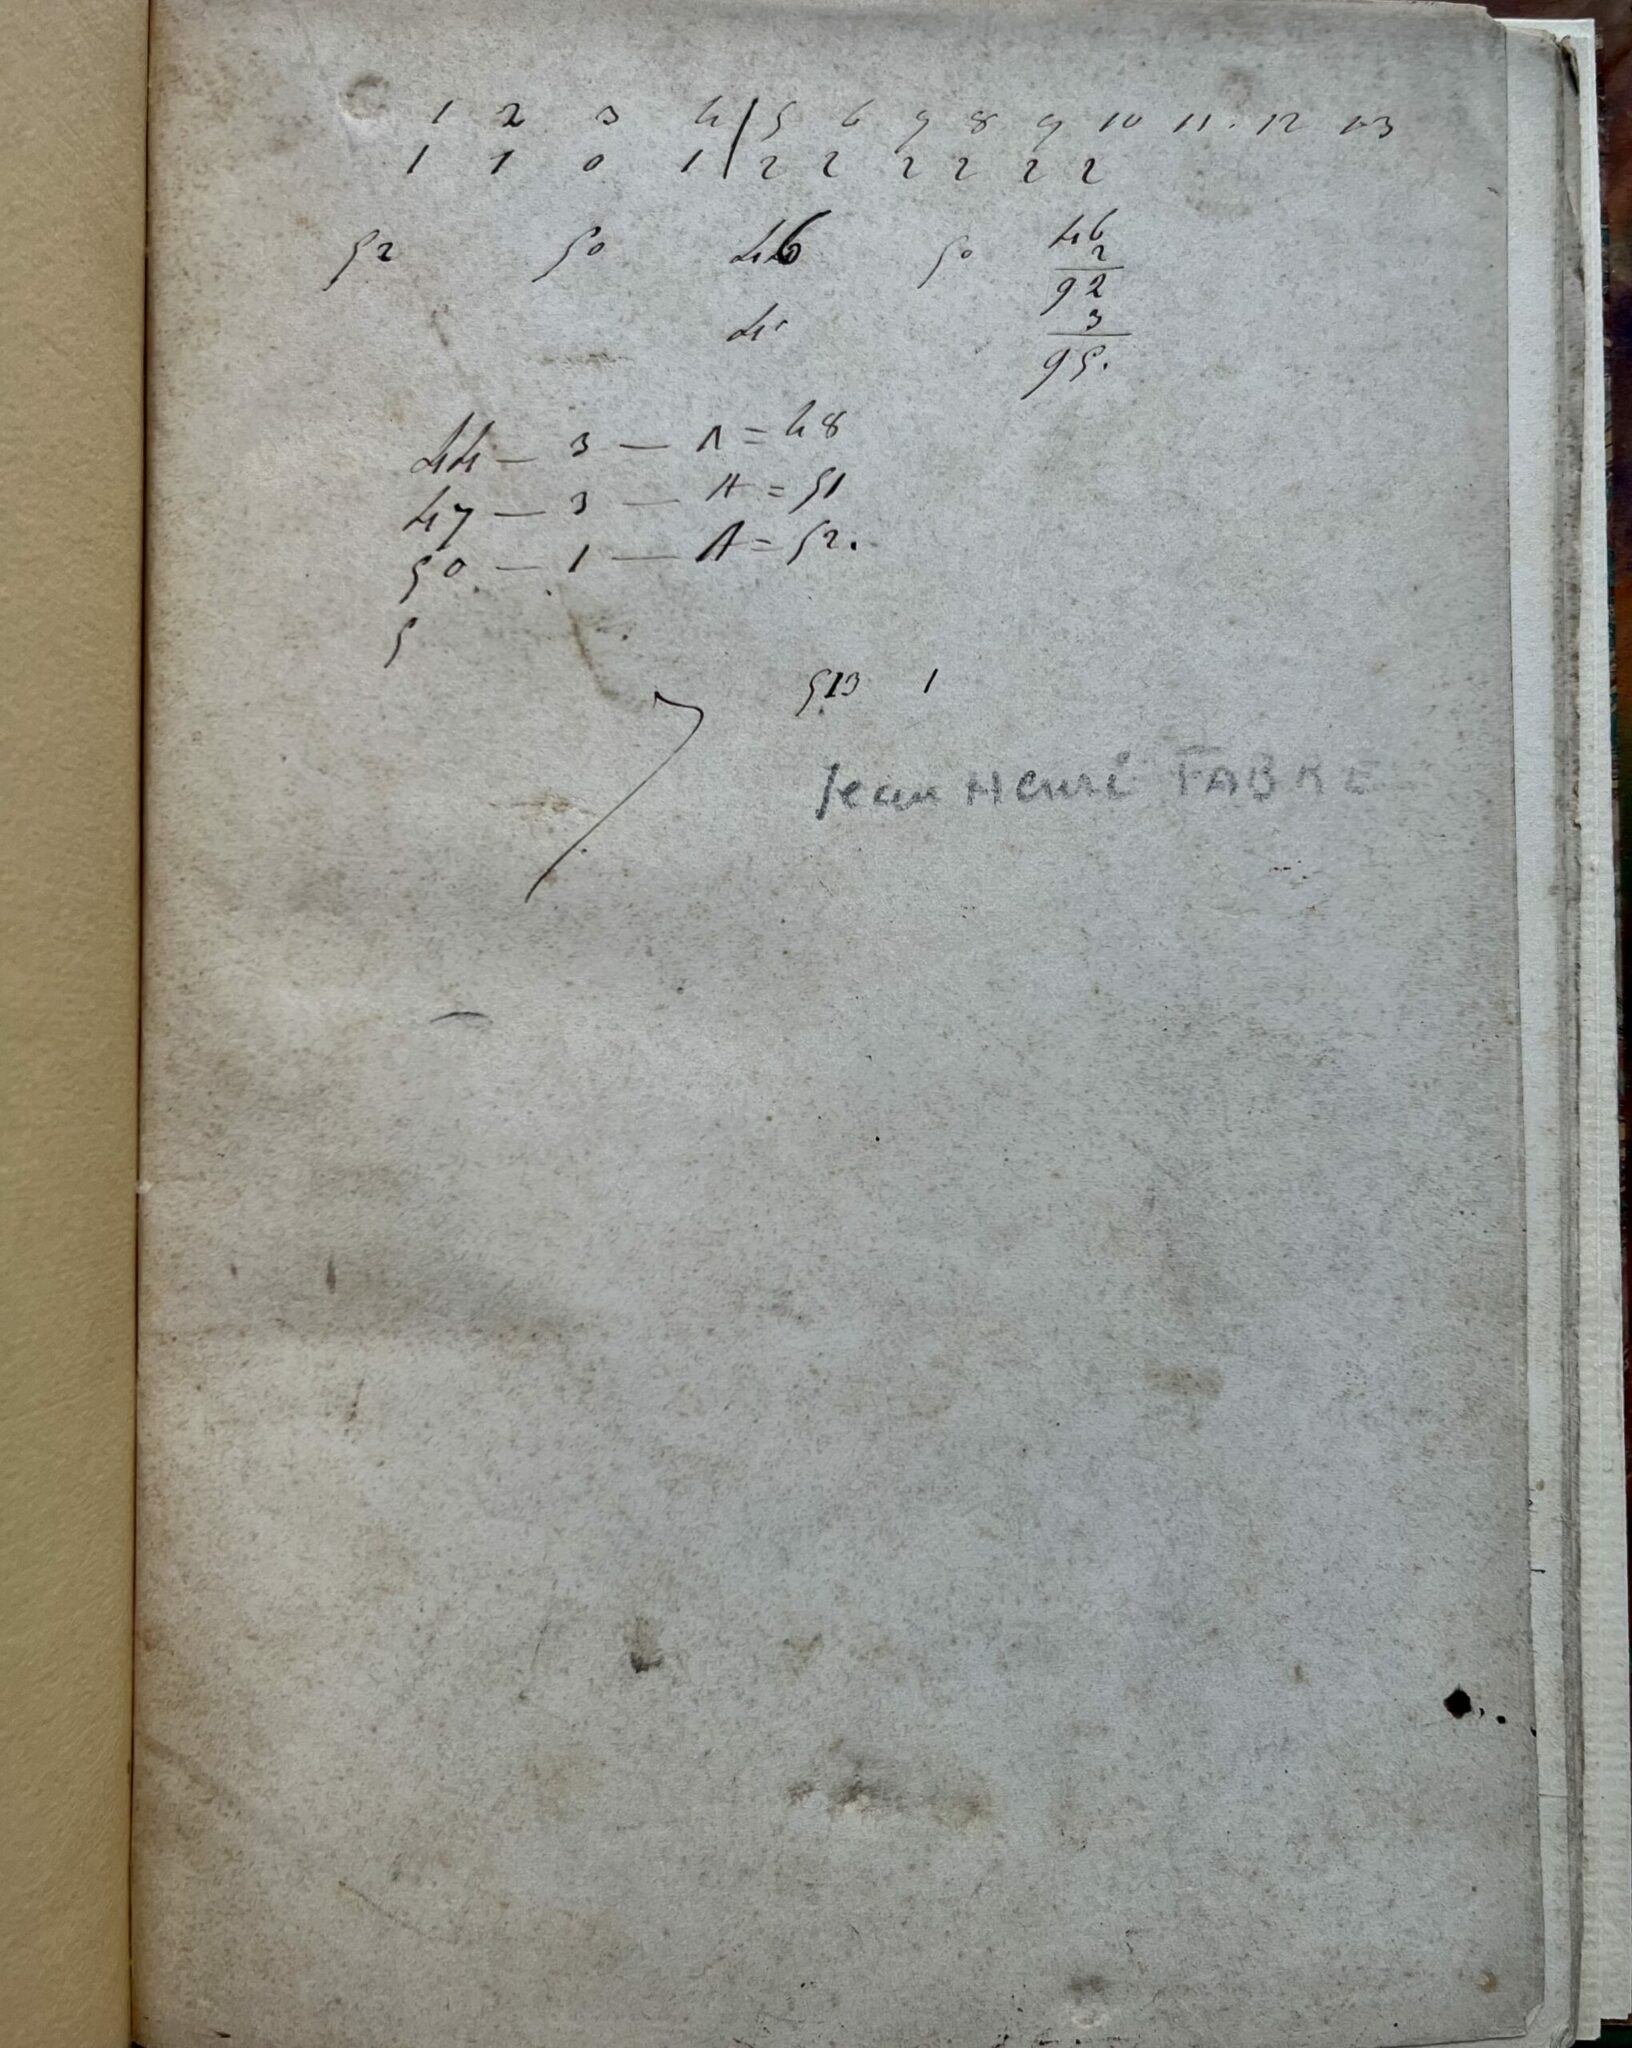 1 2 3 4 | 5 6 7 8 9 10 11. 12 13
1 1 0 1 | 2 2 2 2 2 2
52 50 46 50 46
2
92
4
3
95.
44 — 3 — 1 = 48
47 — 3 — 1 = 51
50 — 1 — 1 = 52.
5
513 1
Jean Henri FABRE